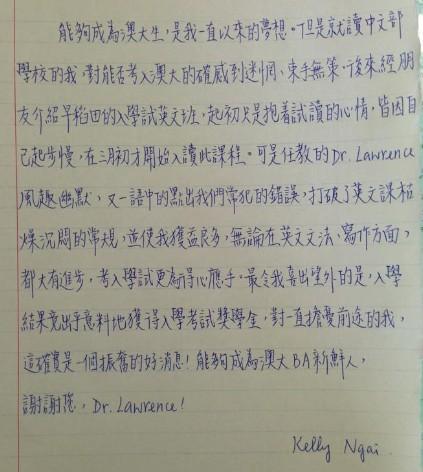 能夠成為澳大生，是我一直以來的夢想。但是就讀中文部
學校的我，對能否考入澳大的確感到迷惘、束手無策。後來經朋
友介紹早稻田的入學試英文班，起初只是抱着試讀的心情，皆因自
己起步慢，在三月初才開始入讀此課程。可是任教的Dr. Lawrence
風趣幽默，又一語中的點出我們常犯的錯誤，打破了英文課枯
燥沉悶的常規，並使我獲益良多，無論在英文文法、寫作方面，
都大有進步，考入學試更為得心應手。最令我喜出望外的是，入學
結果竟出乎意料地獲得入學考試獎學金，對一直擔憂前途的我，
這確實是一個振奮的好消息！能夠成為澳大BA新鮮人，
謝謝您，Dr. Lawrence！
Kelly Ngai.